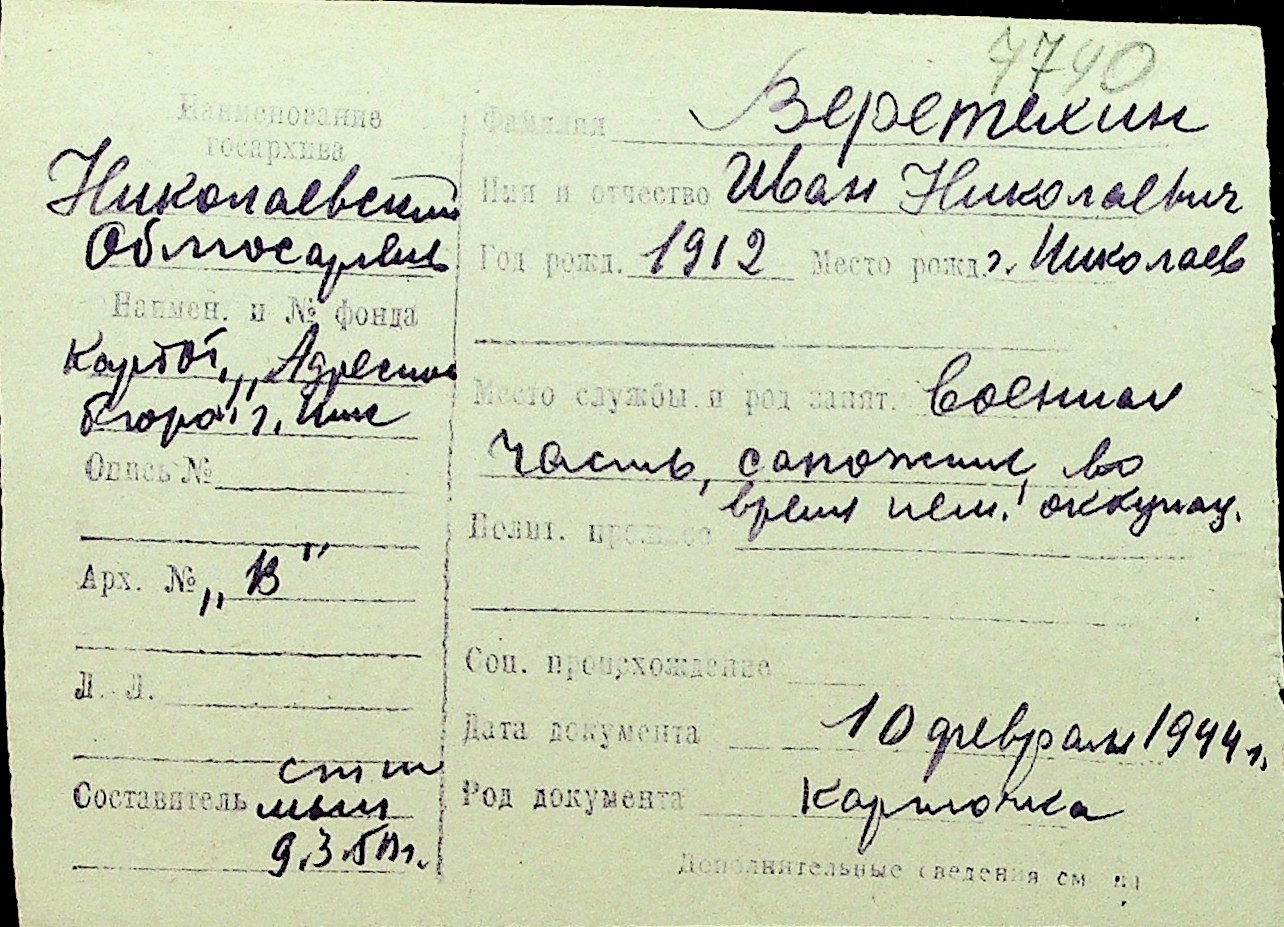 7740
Наименование
госархива
Николаевский
Облгосархив
Наимен. и № фонда
Картот. „Адресное
бюро" г. Ник
Опись №
Арх. № „В"
Л. Л.
Составитель
9.3.50 г.
Фамилия Веретехин
Имя и отчество Иван Николаевич
Год рожд. 1912 Место рожд. г. Николаев
Место службы и род занят. Военная
часть, сапожник, во
время нем. оккупац.
Полит. прошлое
Соц. происхождение
Дата документа 10 февраля 1944 г.
Род документа Карточка
Дополнительные сведения см на